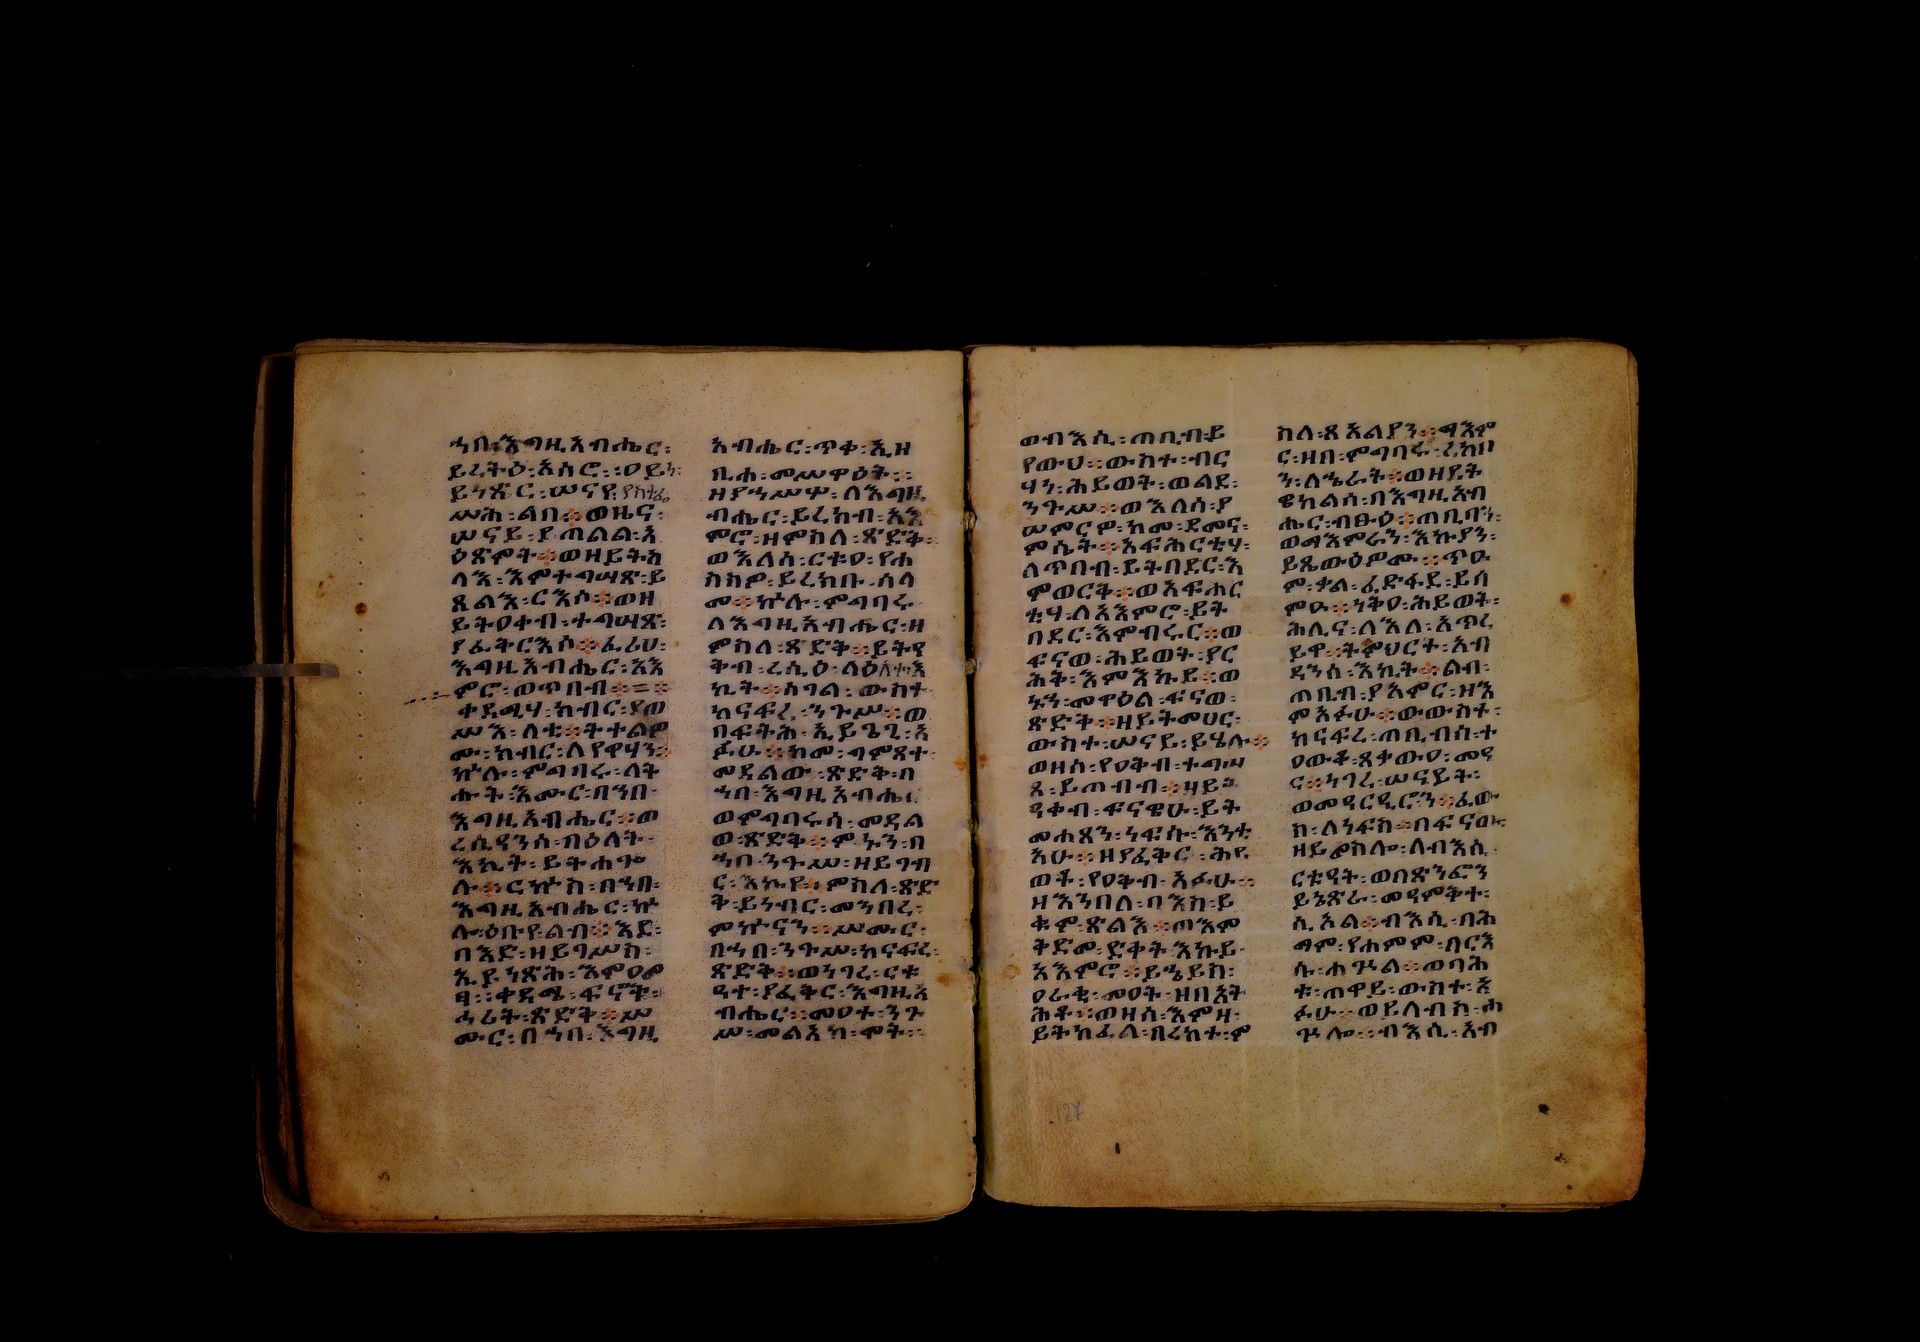 ኀበ፡እግዚአብሔር፡
ይረትዕ፡አሰሮ፡፡ዐይነ፡
ይነጽር፡ሠናየ፡ያስተፌ
ሥሕ፡ልበ፡፡ወዜና፡
ሠናይ፡ያጠልል፡አ
ዕጽምት፡፡ወዘይትከ
ላእ፡እምተግሣጽ፡ይ
ጸልእ፡ርእሶ፡፡ወዘ
ይትዐቀብ፡ተግሣጸ፡
ያፈቅርእሶ፡፡ፈሪሀ፡
እግዚአብሔር፡አእ
ምሮ፡ወጥበብ፡፡
ቀዳሚሃ፡ክብር፡ያወ
ሥእ፡ለቲ፡፡ትተልዎ
ሙ፡ክብር፡ለየዋሃን፡፡
ኵሉ፡ምግባሩ፡ለት
ሑት፡እሙር፡በኀበ፡
እግዚአብሔር፡፡ወ
ረሲዓንሰ፡በዕለት፡
እኪት፡ይትሐጐ
ሉ፡፡ርኩስ፡በኀበ፡
እግዚአብሔር፡ኵ
ሉ፡ዕቡየ፡ልብ፡፡እደ፡
በእድ፡ዘይገሥስ፡
ኢይነጽሕ፡እምዐመ
ፃ፡፡ቀዳሜ፡ፍኖት፡
ሓሪት፡ጽድቅ፡፡ሥ
ሙር፡በኀበ፡እግዚ
አብሔር፡ጥቀ፡ኢዘ
ቢሐ፡መሥዋዕት፡፡
ዘያኀሥሦ፡ለእግዚ
ብሔር፡ይረከብ፡አእ
ምሮ፡ዘምስለ፡ጽድቅ፡
ወእለሰ፡ርቱዐ፡የሐ
ስስዎ፡ይረክቡ፡ሰላ
መ፡፡ኵሉ፡ምግባሩ፡
ለእግዚአብሔር፡ዘ
ምስለ፡ጽድቅ፡፡ይትዓ
ቅብ፡ረሲዕ፡ለዕለተ፡እ
ኪት፡፡ሰገል፡ውስተ፡
ከናፍረ፡ንጉሥ፡፡ወ
በፍትሕ፡ኢይጌጊ፡አ
ፉሁ፡፡ከመ፡ግምጸተ፡
መዳልው፡ጽድቅ፡በ
ኀበ፡እግዚአብሔር
ወምግባሩሰ፡መዳል
ወ፡ጽድቅ፡፡ምኑን፡በ
ኀበ፡ንጉሥ፡ዘይገብ
ር፡እኩየ፡፡ምስለ፡ጽድ
ቅ፡ይነብር፡መንበረ፡
ምኵናን፡፡ሥሙር፡
በኀበ፡ንጉሥ፡ከናፍረ፡
ጽድቅ፡፡ወነገረ፡ርቱ
ዓተ፡ያፈቅር፡እግዚአ
ብሔር፡፡መዐተ፡ንጉ
ሥ፡መልአከ፡ሞት፡፡
ወብእሲ፡ጠቢብ፡ይ
የውህ፡፡ውስተ፡ብር
ሃነ፡ሕይወት፡ወልደ፡
ንጉሥ፡፡ወእለሰ፡ያ
ሠምርዎ፡ከመ፡ደመና፡
ምሴት፡፡አፍሕርቲሃ፡
ለጥበብ፡ይትበደር፡እ
ምወርቅ፡፡ወአፍሐር
ቲሃ፡ለአእምሮ፡ይት
በደር፡እምብሩር፡፡ወ
ፍናወ፡ሕይወት፡ያር
ሕቅ፡እምእኩይ፡፡ወ
ኑኀ፡መዋዕል፡ፍናወ፡
ጽድቅ፡፡ዘይትመሀር፡
ውስተ፡ሠናይ፡ይሄሉ፡፡
ወዘሰ፡የዐቅብ፡ተግሣ
ጸ፡ይጠብብ፡፡ዘይ
ዓቀብ፡ፍናዌሁ፡ይት
መሐፀን፡ነፍሱ፡እንቲ
አሁ፡፡ዘያፈቅር፡ሕይ
ወቶ፡የዐቅብ፡አፉሁ፡፡
ዘእንበለ፡ባእከ፡ይ
ቁም፡ጽልእ፡፡ጠእም
ቅድመ፡ድቀት፡እኩይ፡
አእምሮ፡፡ይኄይስ፡
ዐራቂ፡መዐት፡ዘበእት
ሕቶ፡፡ወዘሰ፡እምዘ፡
ይትከፈል፡በረከተ፡ም
ስለ፡ጸአልያን፡፡ማእም
ር፡ዘበ፡ምግባሩ፡ረከበ
ን፡ለኄራት፡፡ወዘየት
ዌከልሰ፡በእግዚአብ
ሔር፡ብፁዕ፡፡ጠቢባን፡
ወማእምራን፡እኩያን፡
ይጼውዕዎሙ፡፡ጥዑ
ም፡ቃል፡ፈድፋደ፡ይሰ
ምዑ፡፡ነቅዐ፡ሕይወት፡
ሕሊና፡ለእለ፡አጥረ
ይዋ፡፡ትምህርት፡አብ
ዳንሰ፡እኪት፡፡ልብ፡
ጠቢብ፡ያአምር፡ዘእ
ምአፉሁ፡፡ውውስተ፡
ከናፍረ፡ጠቢብሰ፡ተ
ዐውቆ፡ጸቃውዐ፡መዓ
ር፡፡ነገረ፡ሠናይት፡
ወመዓርዒሮን፡፡ፈው
ስ፡ለነፍስ፡፡በፍናው፡
ዘይመስሎ፡ለብእሲ፡
ርቲዓት፡ወበጽንፎን
ይኔጽራ፡መዓምቅተ፡
ሲኦል፡፡ብእሲ፡በሕ
ማም፡የሐምም፡በርእ
ሱ፡ሐጕል፡፡ወባሕ
ቱ፡ጠዋይ፡ውስተ፡አ
ፉሁ፡፡ወይለብስ፡ሐ
ጕሎ፡፡ብእሲ፡አብ
127